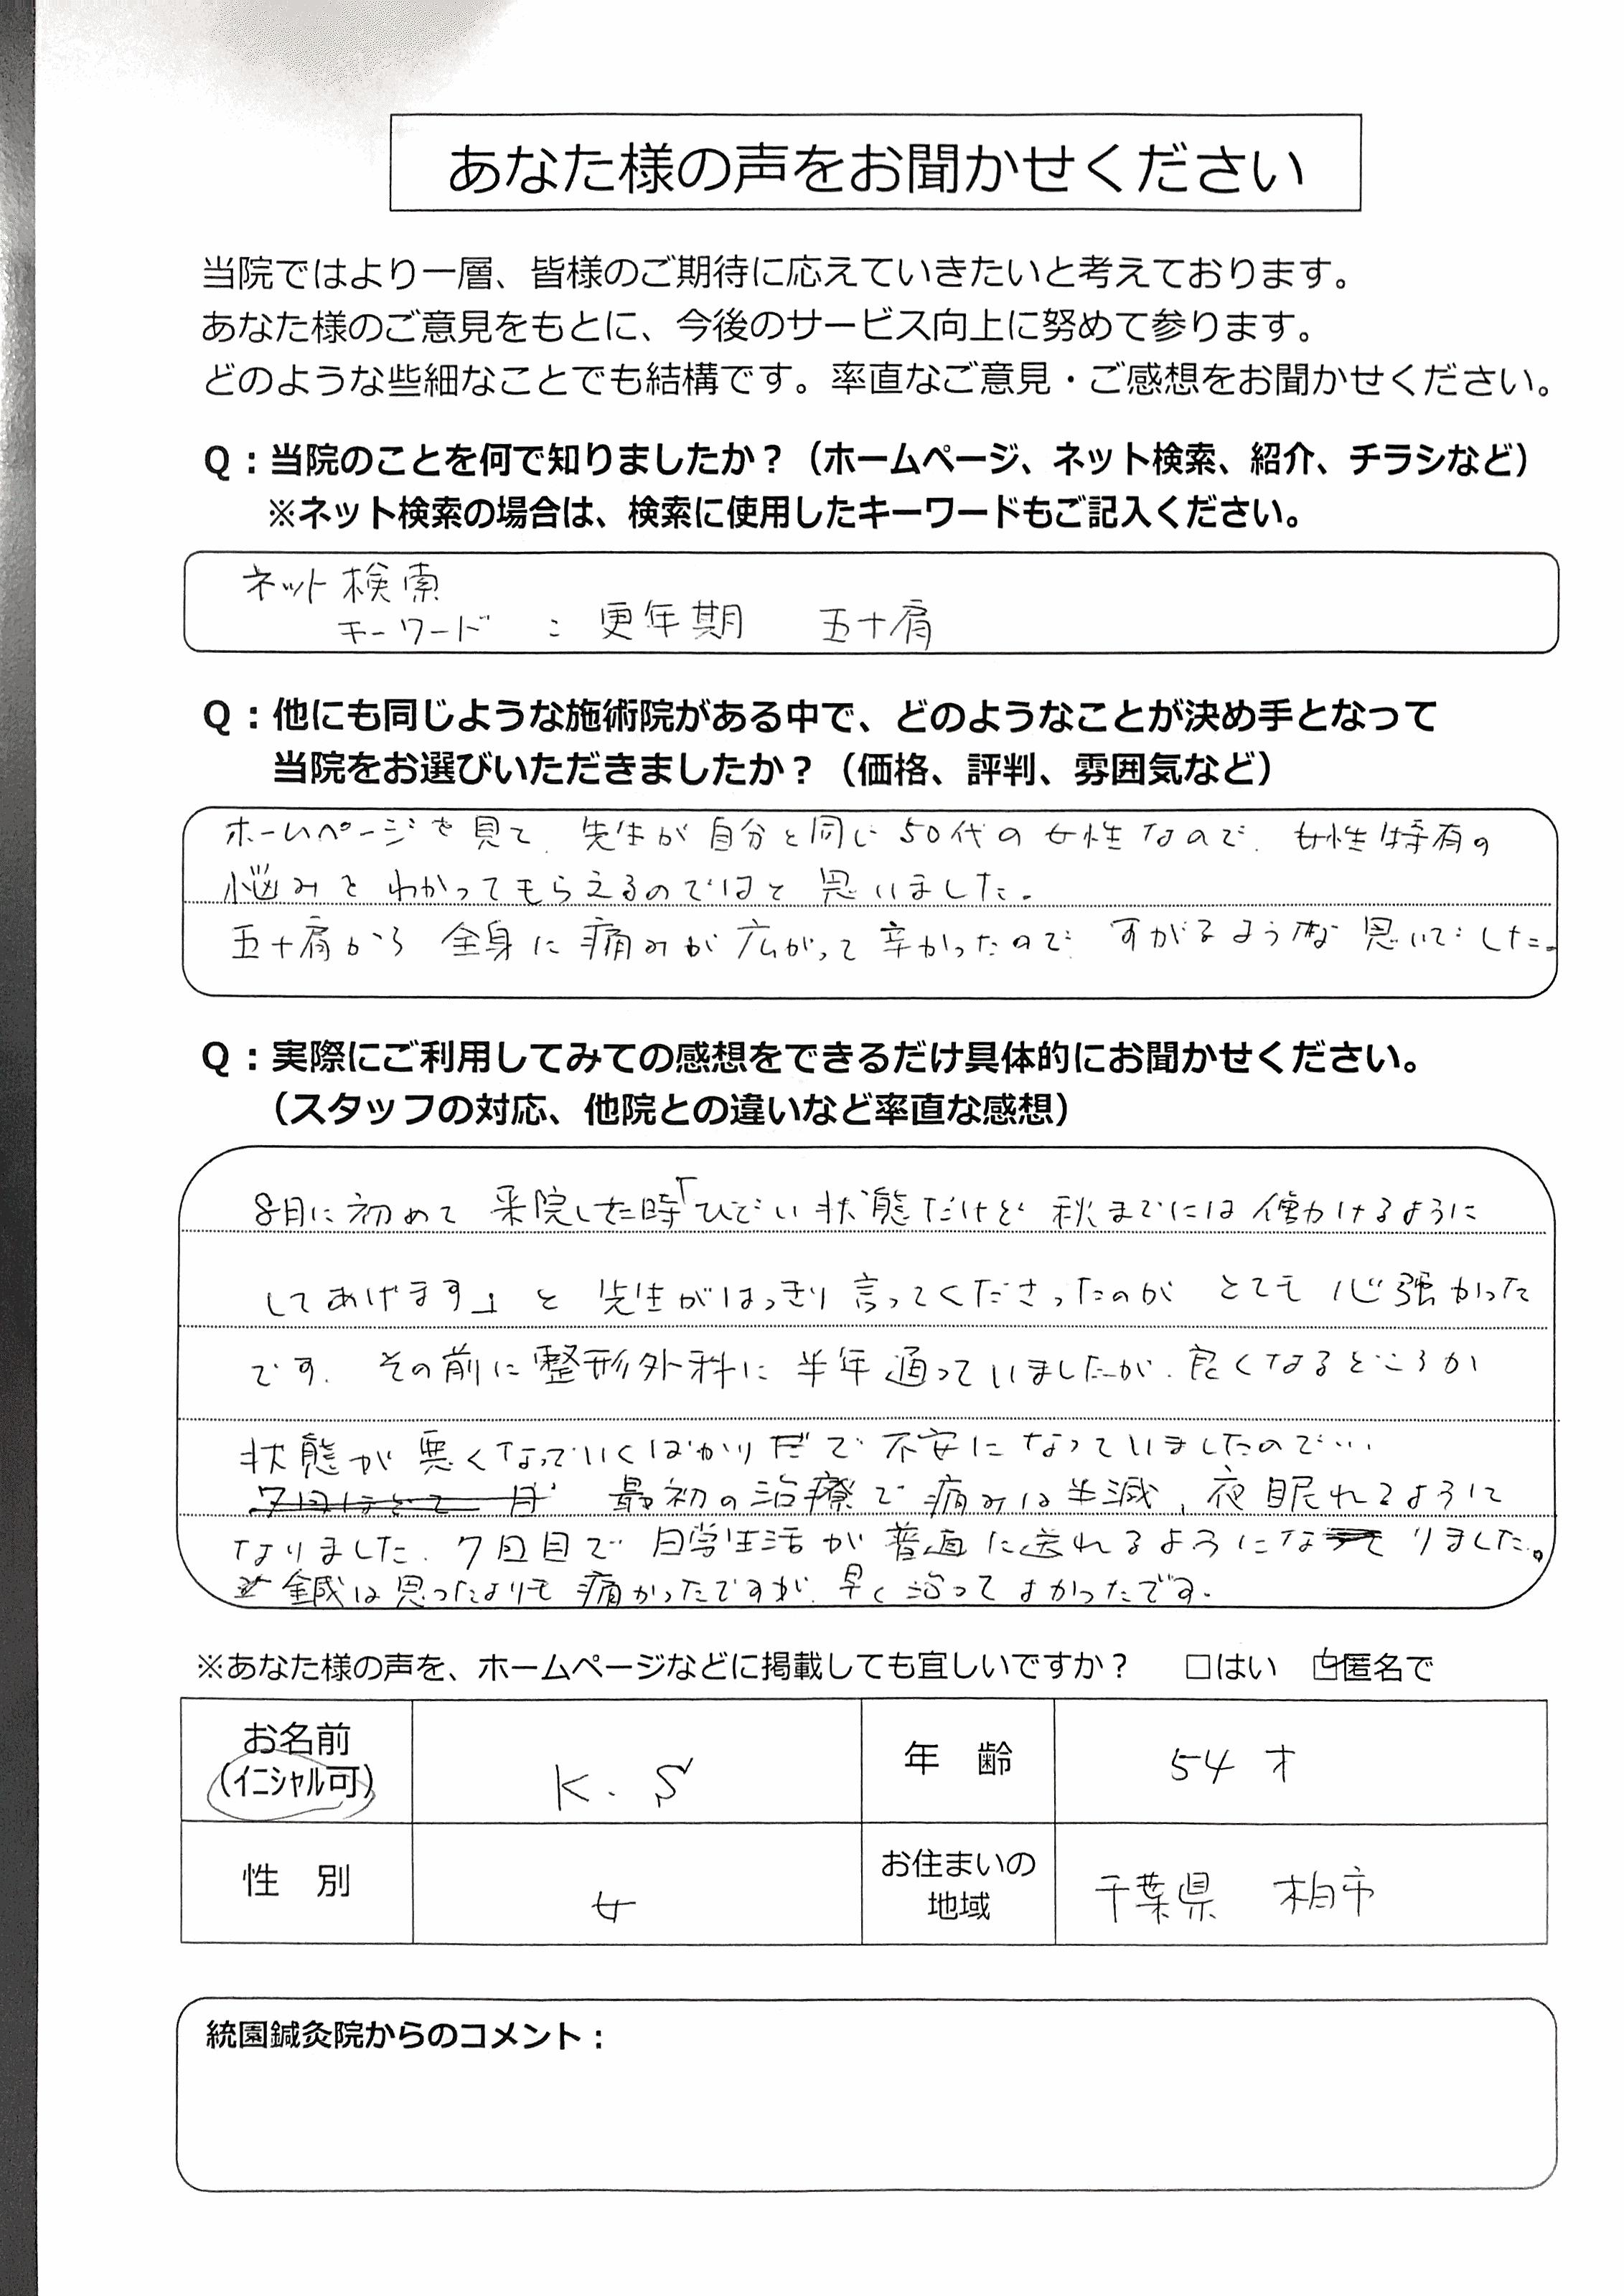 あなた様の声をお聞かせください
当院ではより一層、皆様のご期待に応えていきたいと考えております。
あなた様のご意見をもとに、今後のサービス向上に努めて参ります。
どのような些細なことでも結構です。率直なご意見・ご感想をお聞かせください。
Q：当院のことを何で知りましたか？（ホームページ、ネット検索、紹介、チラシなど）
※ネット検索の場合は、検索に使用したキーワードもご記入ください。
ネット検索
キーワード ： 更年期 五十肩
Q：他にも同じような施術院がある中で、どのようなことが決め手となって
当院をお選びいただきましたか？（価格、評判、雰囲気など）
ホームページを見て、先生が自分と同じ50代の女性なので、女性特有の
悩みをわかってもらえるのではと思いました。
五十肩から全身に痛みが広がって辛かったので、すがるような思いでした。
Q：実際にご利用してみての感想をできるだけ具体的にお聞かせください。
（スタッフの対応、他院との違いなど率直な感想）
8月に初めて来院した時「ひどい状態だけど秋までには働かけるように
してあげます」と先生がはっきり言ってくださったのがとても心強かった
です。その前に整形外科に半年通っていましたが、良くなるどころか
状態が悪くなっていくばかりで不安になっていましたので…
最初の治療で痛みは半減、夜眠れるように
なりました。7回目で日常生活が普通に送れるようになりました。
鍼は思ったよりも痛かったですが、早く治ってよかったです。
※あなた様の声を、ホームページなどに掲載しても宜しいですか？ □はい ☑匿名で
お名前
（イニシャル可）
K.S
年 齢
54才
性 別
女
お住まいの
地域
千葉県 柏市
統園鍼灸院からのコメント：